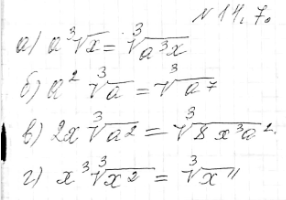 № 14.7.
а) a ∛x = ∛a³x
б) a² ∛a = ∛a⁷
в) 2x ∛a² = ∛8x³a².
г) x³ ∛x² = ∛x¹¹